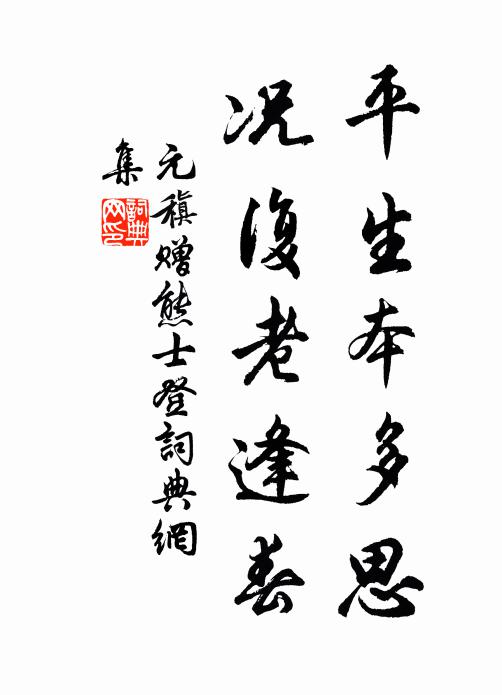 平生本多思
况復老逢春
元稹贈熊士登詞典網
集
詞典
网印